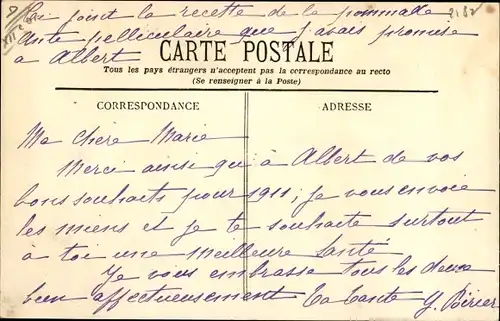 Ci joint la recette de la pommade
Ante pelliculaire que j'avais promise
à Albert
CARTE POSTALE
Tous les pays étrangers n'acceptent pas la correspondance au recto
(Se renseigner à la Poste)
CORRESPONDANCE
ADRESSE
Ma chère Marie
Merci ainsi qu'à Albert de vos
bons souhaits pour 1911, je vous envoie
les miens et je te souhaite surtout
à toi une meilleure santé
Je vous embrasse tous les deux
bien affectueusement ta tante Y. Poirier